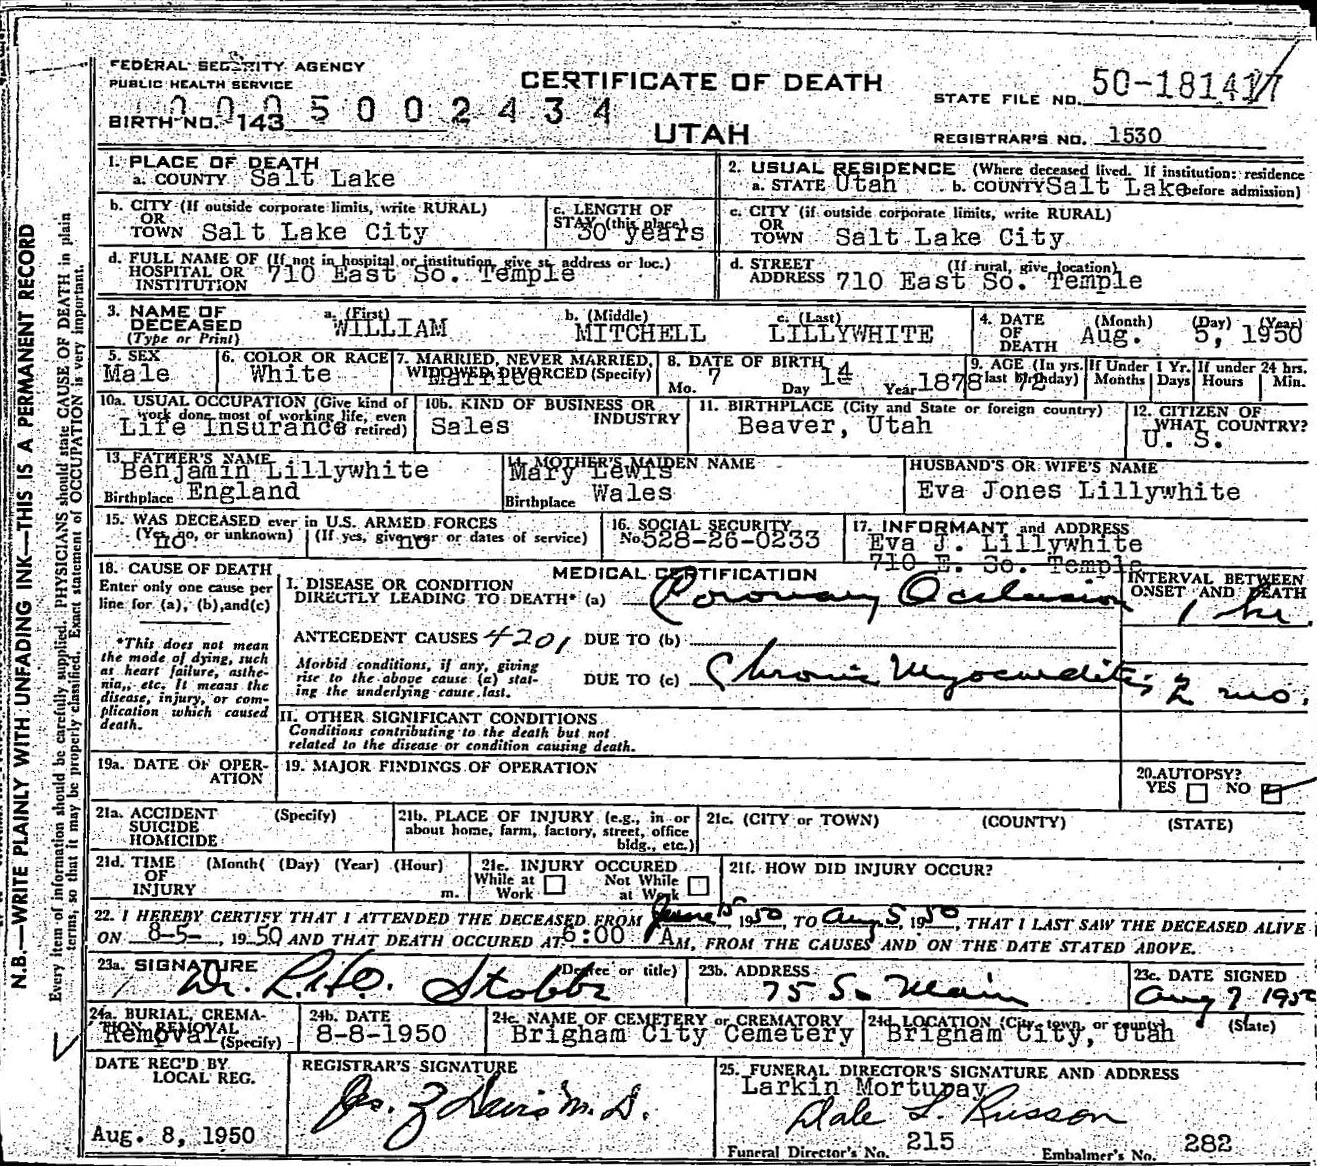 FEDERAL SECURITY AGENCY
PUBLIC HEALTH SERVICE
CERTIFICATE OF DEATH
UTAH
STATE FILE NO. 50-181417
0005002434
BIRTH NO. 143
REGISTRAR'S NO. 1530
N.B.—WRITE PLAINLY WITH UNFADING INK—THIS IS A PERMANENT RECORD
Every item of information should be carefully supplied. PHYSICIANS should state CAUSE OF DEATH in plain
terms, so that it may be properly classified. Exact statement of OCCUPATION is very important.
1. PLACE OF DEATH
a. COUNTY Salt Lake
2. USUAL RESIDENCE (Where deceased lived. If institution: residence
a. STATE Utah b. COUNTY Salt Lake before admission)
b. CITY (If outside corporate limits, write RURAL)
OR
TOWN Salt Lake City
c. LENGTH OF
STAY (this place)
30 years
c. CITY (if outside corporate limits, write RURAL)
OR
TOWN Salt Lake City
d. FULL NAME OF (If not in hospital or institution, give st. address or loc.)
HOSPITAL OR
INSTITUTION 710 East So. Temple
d. STREET (If rural, give location)
ADDRESS 710 East So. Temple
3. NAME OF
DECEASED
(Type or Print)
a. (First) b. (Middle) c. (Last)
WILLIAM MITCHELL LILLYWHITE
4. DATE (Month) (Day) (Year)
OF
DEATH Aug. 5, 1950
5. SEX
Male
6. COLOR OR RACE
White
7. MARRIED, NEVER MARRIED,
WIDOWED, DIVORCED (Specify)
Married
8. DATE OF BIRTH
Mo. 7 Day 14 Year 1878
9. AGE (In yrs. last birthday) 72
If Under 1 Yr. Months Days
If under 24 hrs. Hours Min.
10a. USUAL OCCUPATION (Give kind of
work done most of working life, even
retired)
Life Insurance
10b. KIND OF BUSINESS OR
INDUSTRY
Sales
11. BIRTHPLACE (City and State or foreign country)
Beaver, Utah
12. CITIZEN OF
WHAT COUNTRY?
U. S.
13. FATHER'S NAME
Benjamin Lillywhite
Birthplace England
14. MOTHER'S MAIDEN NAME
Mary Lewis
Birthplace Wales
HUSBAND'S OR WIFE'S NAME
Eva Jones Lillywhite
15. WAS DECEASED ever in U.S. ARMED FORCES
(Yes, no, or unknown) (If yes, give war or dates of service)
no no
16. SOCIAL SECURITY
No. 528-26-0233
17. INFORMANT and ADDRESS
Eva J. Lillywhite
710 E. So. Temple
18. CAUSE OF DEATH
Enter only one cause per
line for (a), (b), and (c)
*This does not mean
the mode of dying, such
as heart failure, asthe-
nia, etc. It means the
disease, injury, or com-
plication which caused
death.
MEDICAL CERTIFICATION
I. DISEASE OR CONDITION
DIRECTLY LEADING TO DEATH* (a) Coronary Occlusion
INTERVAL BETWEEN
ONSET AND DEATH
1 hr.
ANTECEDENT CAUSES 4201 DUE TO (b)
Morbid conditions, if any, giving
rise to the above cause (a) stat-
ing the underlying cause last.
DUE TO (c) Chronic Myocarditis 2 mo.
II. OTHER SIGNIFICANT CONDITIONS
Conditions contributing to the death but not
related to the disease or condition causing death.
19a. DATE OF OPER-
ATION
19. MAJOR FINDINGS OF OPERATION
20. AUTOPSY?
YES NO
21a. ACCIDENT (Specify)
SUICIDE
HOMICIDE
21b. PLACE OF INJURY (e.g., in or
about home, farm, factory, street, office
bldg., etc.)
21c. (CITY or TOWN) (COUNTY) (STATE)
21d. TIME (Month( (Day) (Year) (Hour)
OF
INJURY m.
21e. INJURY OCCURED
While at Work Not While at Work
21f. HOW DID INJURY OCCUR?
22. I HEREBY CERTIFY THAT I ATTENDED THE DECEASED FROM June 15, 1950, TO Aug 5, 1950, THAT I LAST SAW THE DECEASED ALIVE
ON 8-5-, 1950 AND THAT DEATH OCCURED AT 6:00 A M., FROM THE CAUSES AND ON THE DATE STATED ABOVE.
23a. SIGNATURE (Degree or title)
Dr. Stobbe
23b. ADDRESS
75 So. Main
23c. DATE SIGNED
Aug 7 1950
24a. BURIAL, CREMA-
TION, REMOVAL
(Specify)
Removal
24b. DATE
8-8-1950
24c. NAME OF CEMETERY or CREMATORY
Brigham City Cemetery
24d. LOCATION (City, town, or county) (State)
Brigham City, Utah
DATE REC'D BY
LOCAL REG.
Aug. 8, 1950
REGISTRAR'S SIGNATURE
Jos. Z Davis M.D.
25. FUNERAL DIRECTOR'S SIGNATURE AND ADDRESS
Larkin Mortupay
Dale L. Russon
Funeral Director's No. 215 Embalmer's No. 282